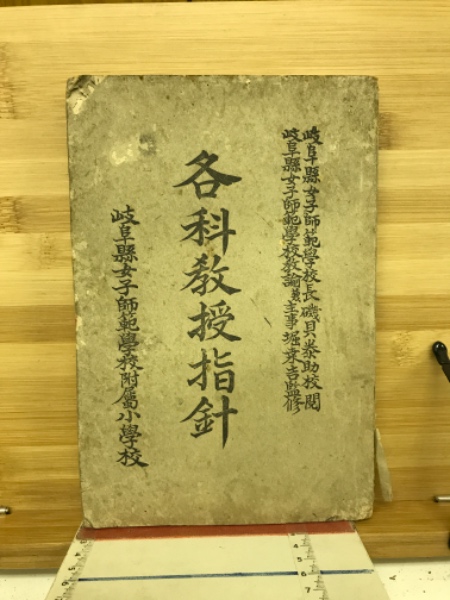 岐阜縣女子師範學校長磯貝泰助校閲
岐阜縣女子師範學校教諭兼主事堀栄吉監修
各科教授指針
岐阜縣女子師範學校附屬小學校